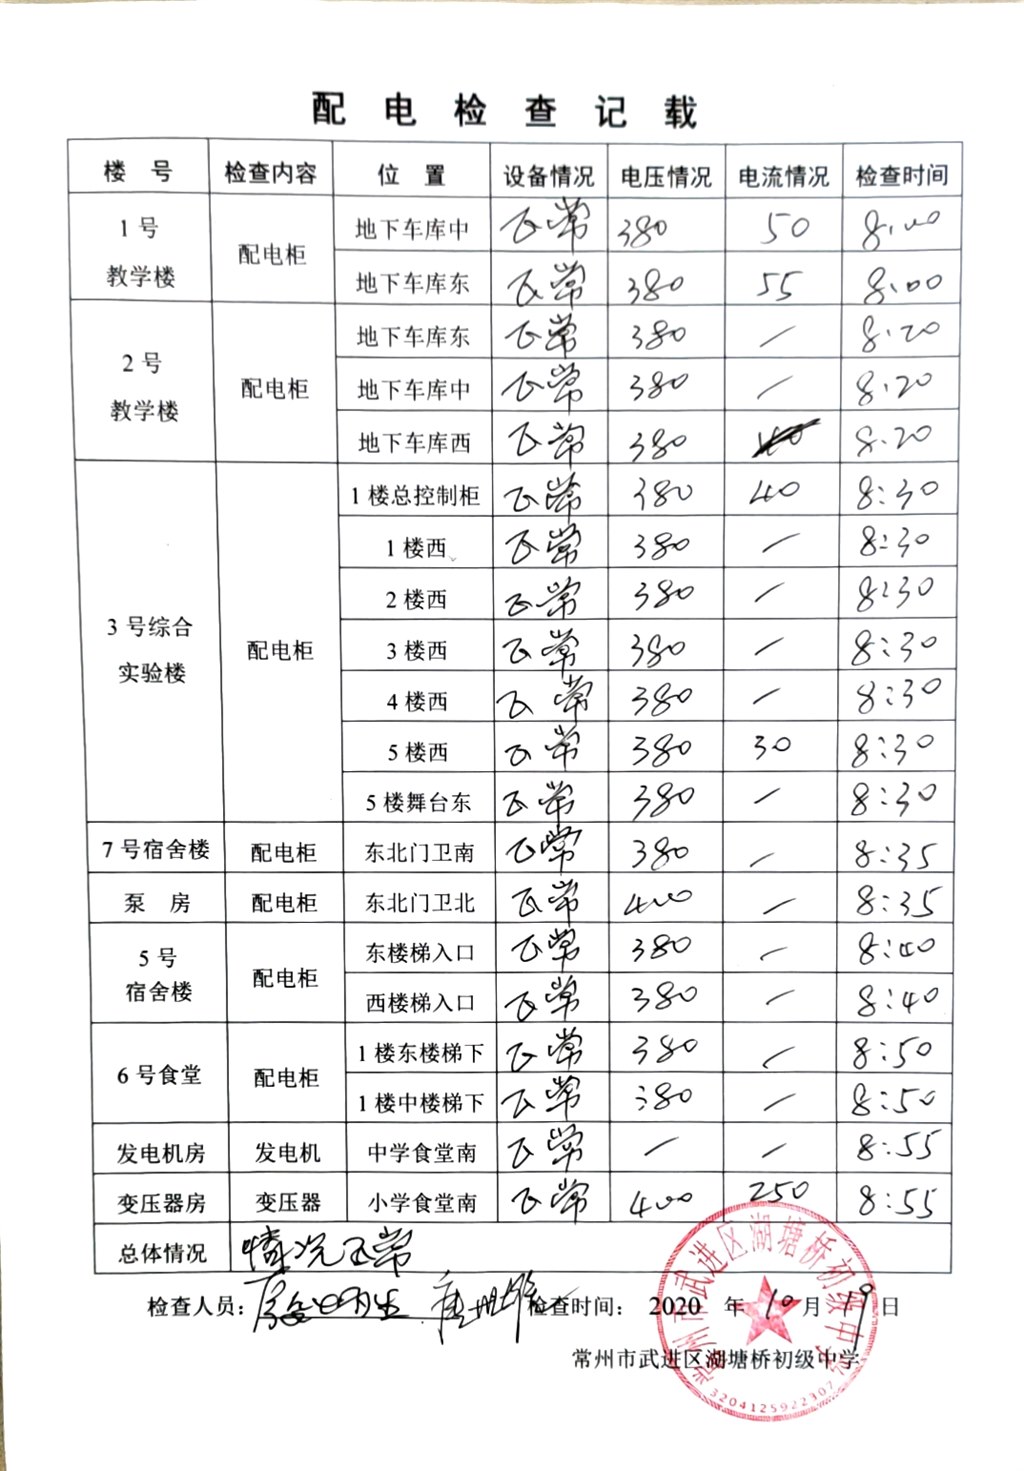 配电检查记载
楼 号 检查内容 位 置 设备情况 电压情况 电流情况 检查时间
1号教学楼 配电柜 地下车库中 正常 380 50 8:00
地下车库东 正常 380 55 8:00
2号教学楼 配电柜 地下车库东 正常 380 / 8:20
地下车库中 正常 380 / 8:20
地下车库西 正常 380 8:20
3号综合实验楼 配电柜 1楼总控制柜 正常 380 40 8:30
1楼西 正常 380 / 8:30
2楼西 正常 380 / 8:30
3楼西 正常 380 / 8:30
4楼西 正常 380 / 8:30
5楼西 正常 380 30 8:30
5楼舞台东 正常 380 / 8:30
7号宿舍楼 配电柜 东北门卫南 正常 380 / 8:35
泵 房 配电柜 东北门卫北 正常 400 / 8:35
5号宿舍楼 配电柜 东楼梯入口 正常 380 / 8:40
西楼梯入口 正常 380 / 8:40
6号食堂 配电柜 1楼东楼梯下 正常 380 / 8:50
1楼中楼梯下 正常 380 / 8:50
发电机房 发电机 中学食堂南 正常 / / 8:55
变压器房 变压器 小学食堂南 正常 400 250 8:55
总体情况 情况正常
检查人员： 检查时间： 2020 年 10 月 19 日
常州市武进区湖塘桥初级中学
常州市武进区湖塘桥初级中学
3204125922307